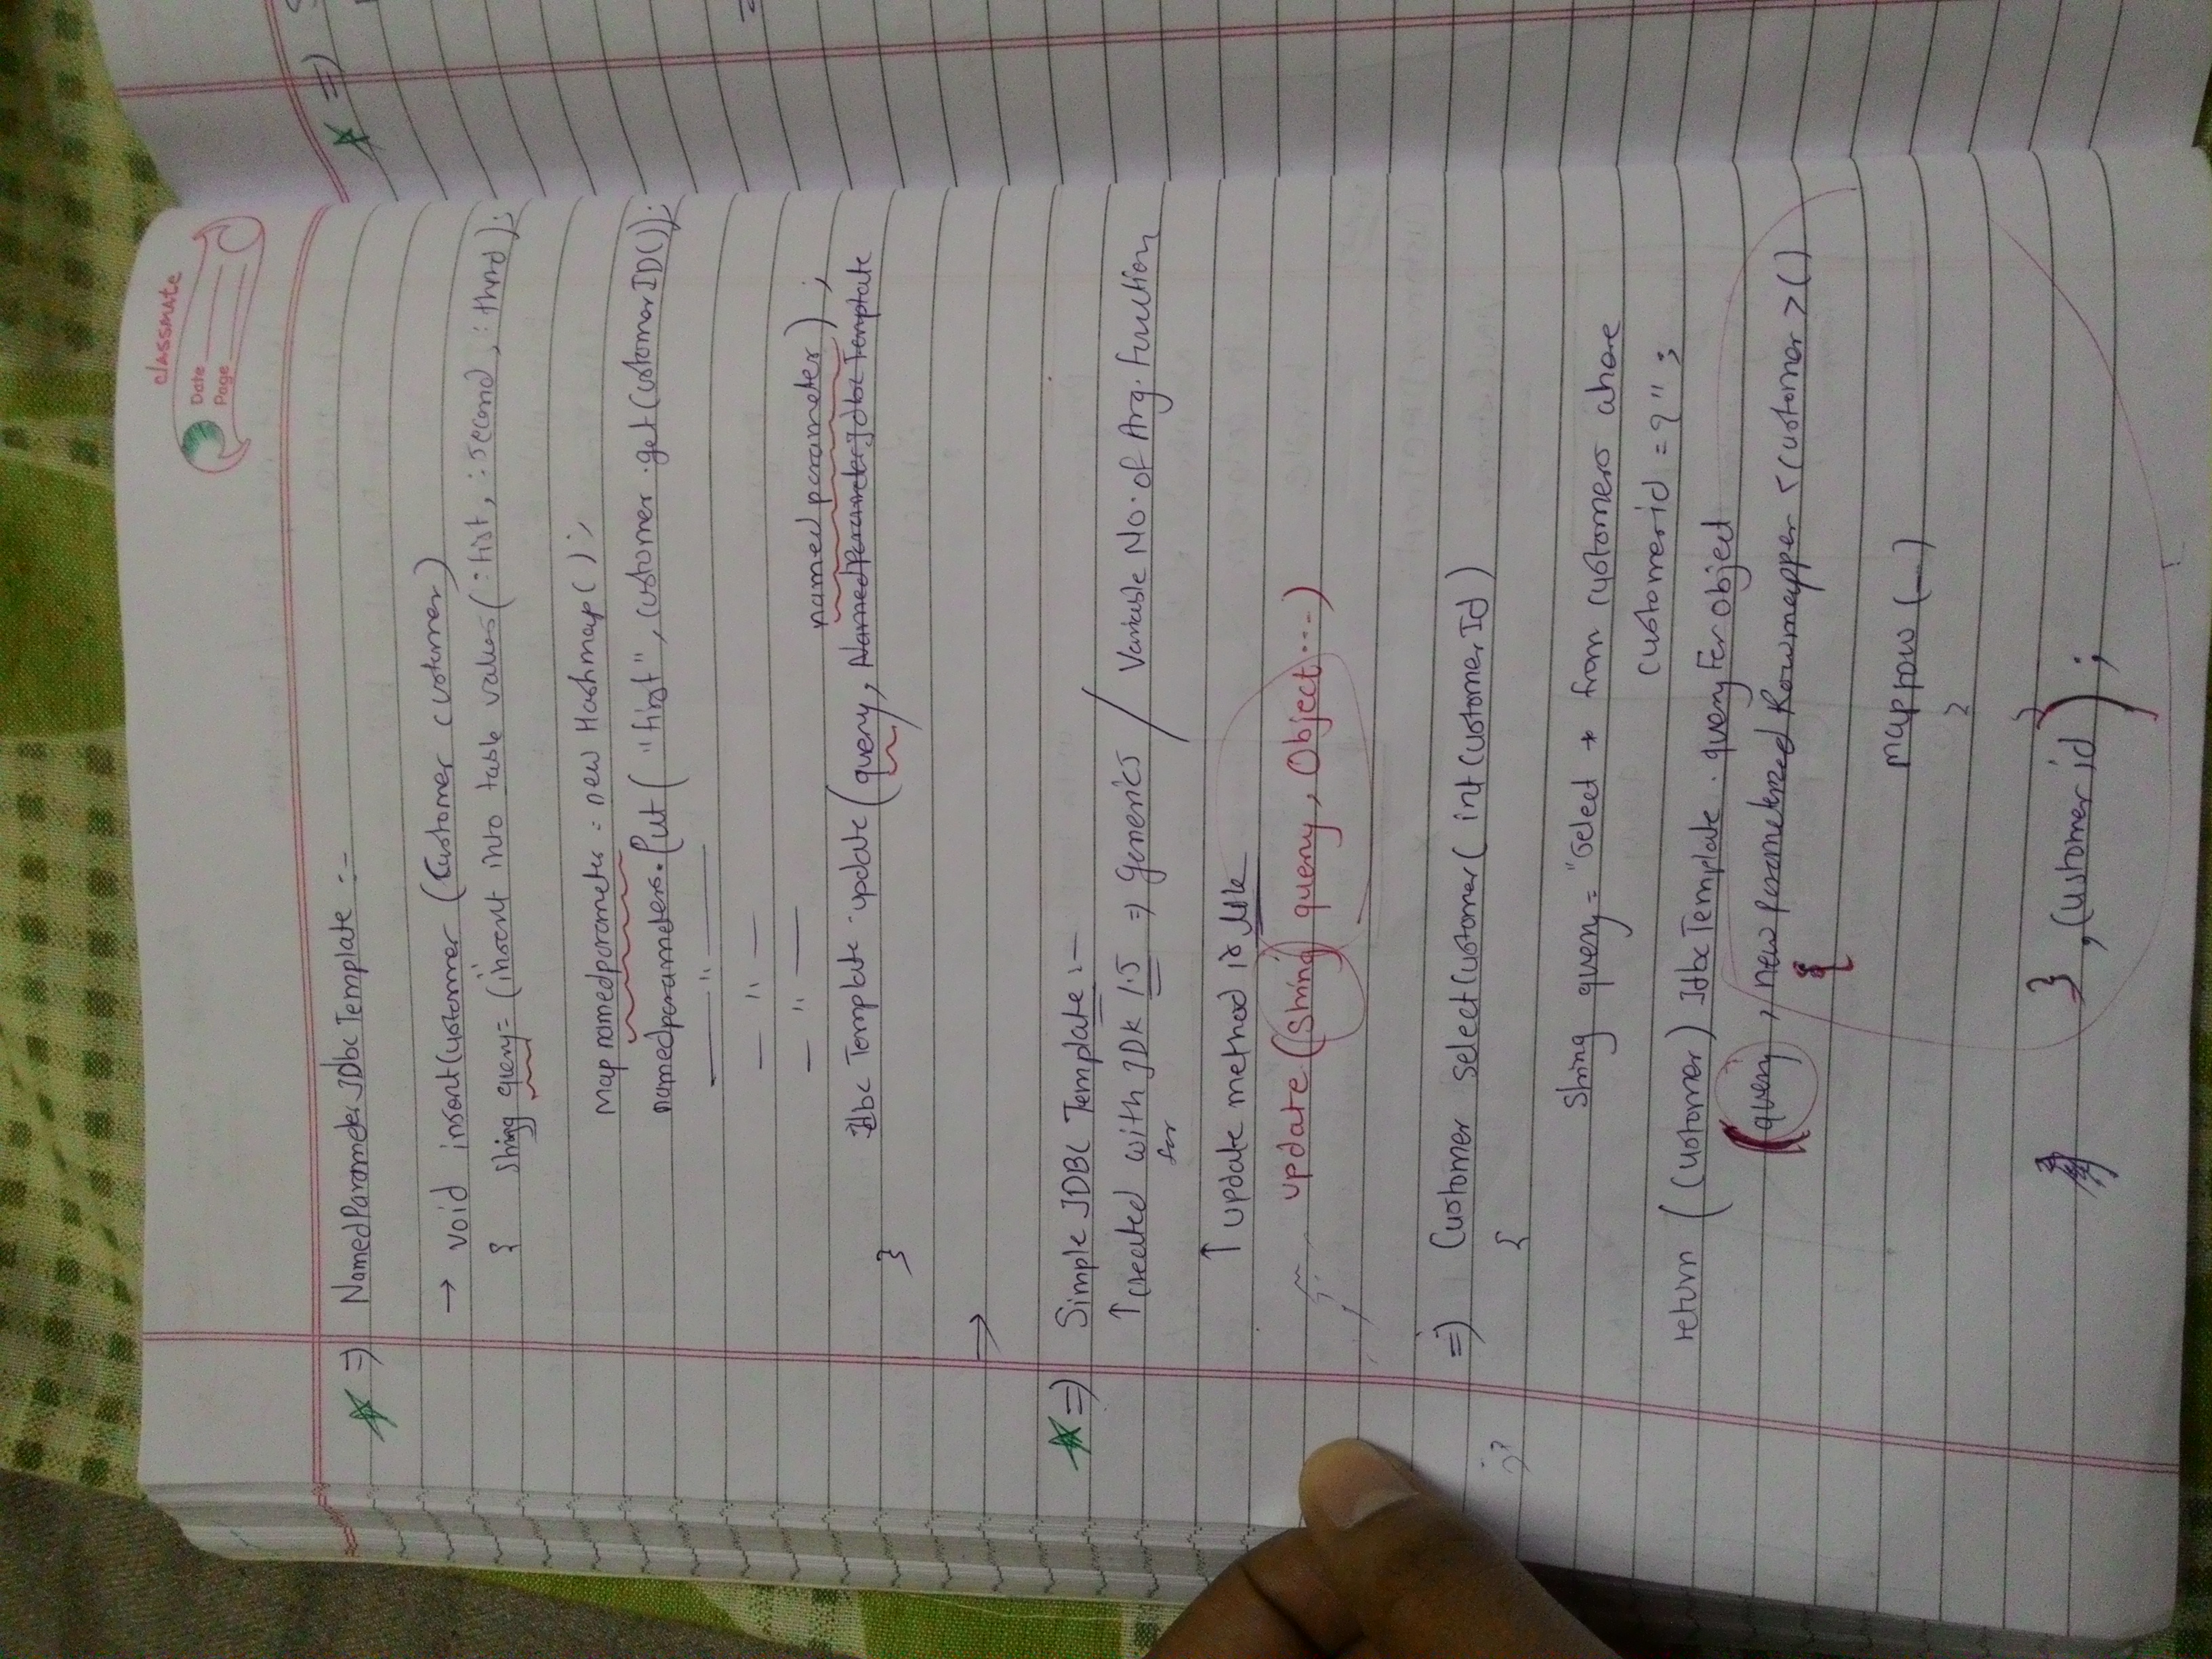 classmate
Date
Page
⇒ NamedParameterJDbcTemplate :-
→ void insertCustomer (Customer customer)
{ String query= (insert into table values(:fist, :second, :third);
Map namedparameter = new Hashmap();
namedparameters.Put( "first", customer.getCustomerID());
— " —
— " —
— " —
named parameter);
Jdbc Template.update(query, NamedParameterJdbcTemplate
}
→
⇒ Simple JDBC Template :-
↑ created with JDK 1.5 ⇒ Generics / Variable No. of Arg. function
for
↑ update method is like
update (String query, Object ...)
⇒ Customer selectCustomer( int CustomerId)
{
String query= "select * from customers where
customerid = ?" ;
return ( (ustomer) JdbcTemplate . queryForObject
(query , new parameterized Rowmapper <customer>()
{
maprow (—)
}
} , (ustomer id ) ;